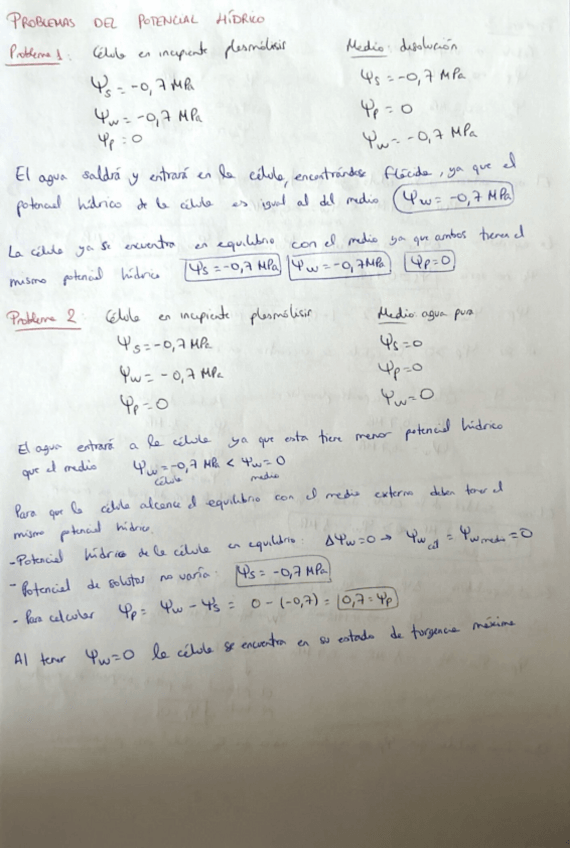 PROBLEMAS DEL POTENCIAL HÍDRICO
Problema 1: Célula en incipiente plasmólisis Medio: disolución
Ψs = -0,7 MPa Ψs = -0,7 MPa
Ψw = -0,7 MPa Ψp = 0
Ψp = 0 Ψw = -0,7 MPa
El agua saldrá y entrará en la célula, encontrándose flácida, ya que el
potencial hídrico de la célula es igual al del medio Ψw = -0,7 MPa
La célula ya se encuentra en equilibrio con el medio ya que ambos tienen el
mismo potencial hídrico Ψs = -0,7 MPa Ψw = -0,7 MPa Ψp = 0
Problema 2: Célula en incipiente plasmólisis Medio: agua pura
Ψs = -0,7 MPa Ψs = 0
Ψw = -0,7 MPa Ψp = 0
Ψp = 0 Ψw = 0
El agua entrará a la célula ya que esta tiene menor potencial hídrico
que el medio Ψw = -0,7 MPa < Ψw = 0
célula medio
Para que la célula alcance el equilibrio con el medio externo deben tener el
mismo potencial hídrico.
- Potencial hídrico de la célula en equilibrio: ΔΨw = 0 → Ψw cél = Ψw medio = 0
- Potencial de solutos no varía: Ψs = -0,7 MPa
- Para calcular Ψp = Ψw - Ψs = 0 - (-0,7) = 0,7 = Ψp
Al tener Ψw = 0 la célula se encuentra en su estado de turgencia máxima